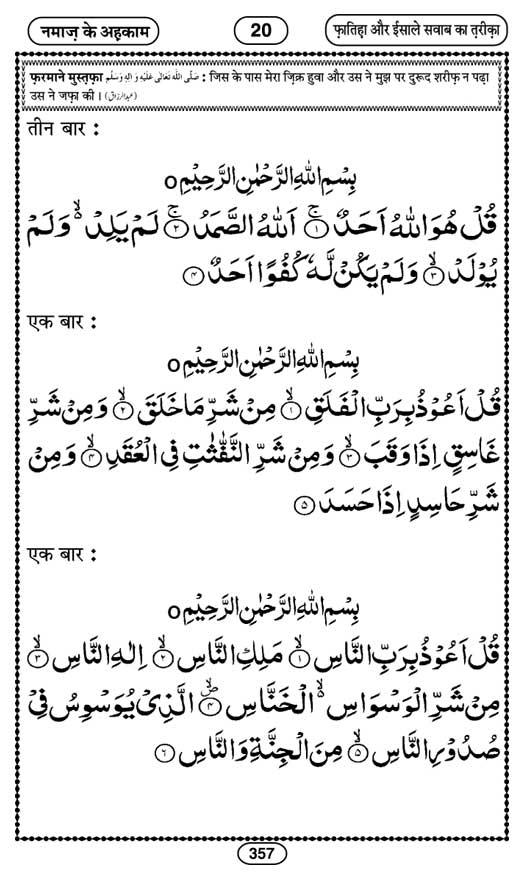 नमाज़ के अह़काम
20
फ़ातिह़ा और ईसाले सवाब का त़रीक़ा
फ़रमाने मुस्त़फ़ा صَلَّى اللهُ تَعَالٰى عَلَيْهِ وَاٰلِهٖ وَسَلَّم : जिस के पास मेरा ज़िक्र हुवा और उस ने मुझ पर दुरूद शरीफ़ न पढ़ा
उस ने जफ़ा की । (عبدالرزاق)
तीन बार :
بِسْمِ اللهِ الرَّحْمٰنِ الرَّحِيْمِ ○
قُلْ هُوَ اللهُ اَحَدٌ ۚ﴿۱﴾ اَللهُ الصَّمَدُ ۚ﴿۲﴾ لَمْ يَلِدْ ۙ وَلَمْ
يُوْلَدْ ۙ﴿۳﴾ وَلَمْ يَكُنْ لَّهٗ كُفُوًا اَحَدٌ ﴿۴﴾
एक बार :
بِسْمِ اللهِ الرَّحْمٰنِ الرَّحِيْمِ ○
قُلْ اَعُوْذُ بِرَبِّ الْفَلَقِ ۙ﴿۱﴾ مِنْ شَرِّ مَا خَلَقَ ۙ﴿۲﴾ وَمِنْ شَرِّ
غَاسِقٍ اِذَا وَقَبَ ۙ﴿۳﴾ وَمِنْ شَرِّ النَّفّٰثٰتِ فِي الْعُقَدِ ۙ﴿۴﴾ وَمِنْ
شَرِّ حَاسِدٍ اِذَا حَسَدَ ﴿۵﴾
एक बार :
بِسْمِ اللهِ الرَّحْمٰنِ الرَّحِيْمِ ○
قُلْ اَعُوْذُ بِرَبِّ النَّاسِ ۙ﴿۱﴾ مَلِكِ النَّاسِ ۙ﴿۲﴾ اِلٰهِ النَّاسِ ۙ﴿۳﴾
مِنْ شَرِّ الْوَسْوَاسِ ۙ الْخَنَّاسِ ۪ۙ﴿۴﴾ الَّذِيْ يُوَسْوِسُ فِيْ
صُدُوْرِ النَّاسِ ۙ﴿۵﴾ مِنَ الْجِنَّةِ وَالنَّاسِ ﴿۶﴾
357